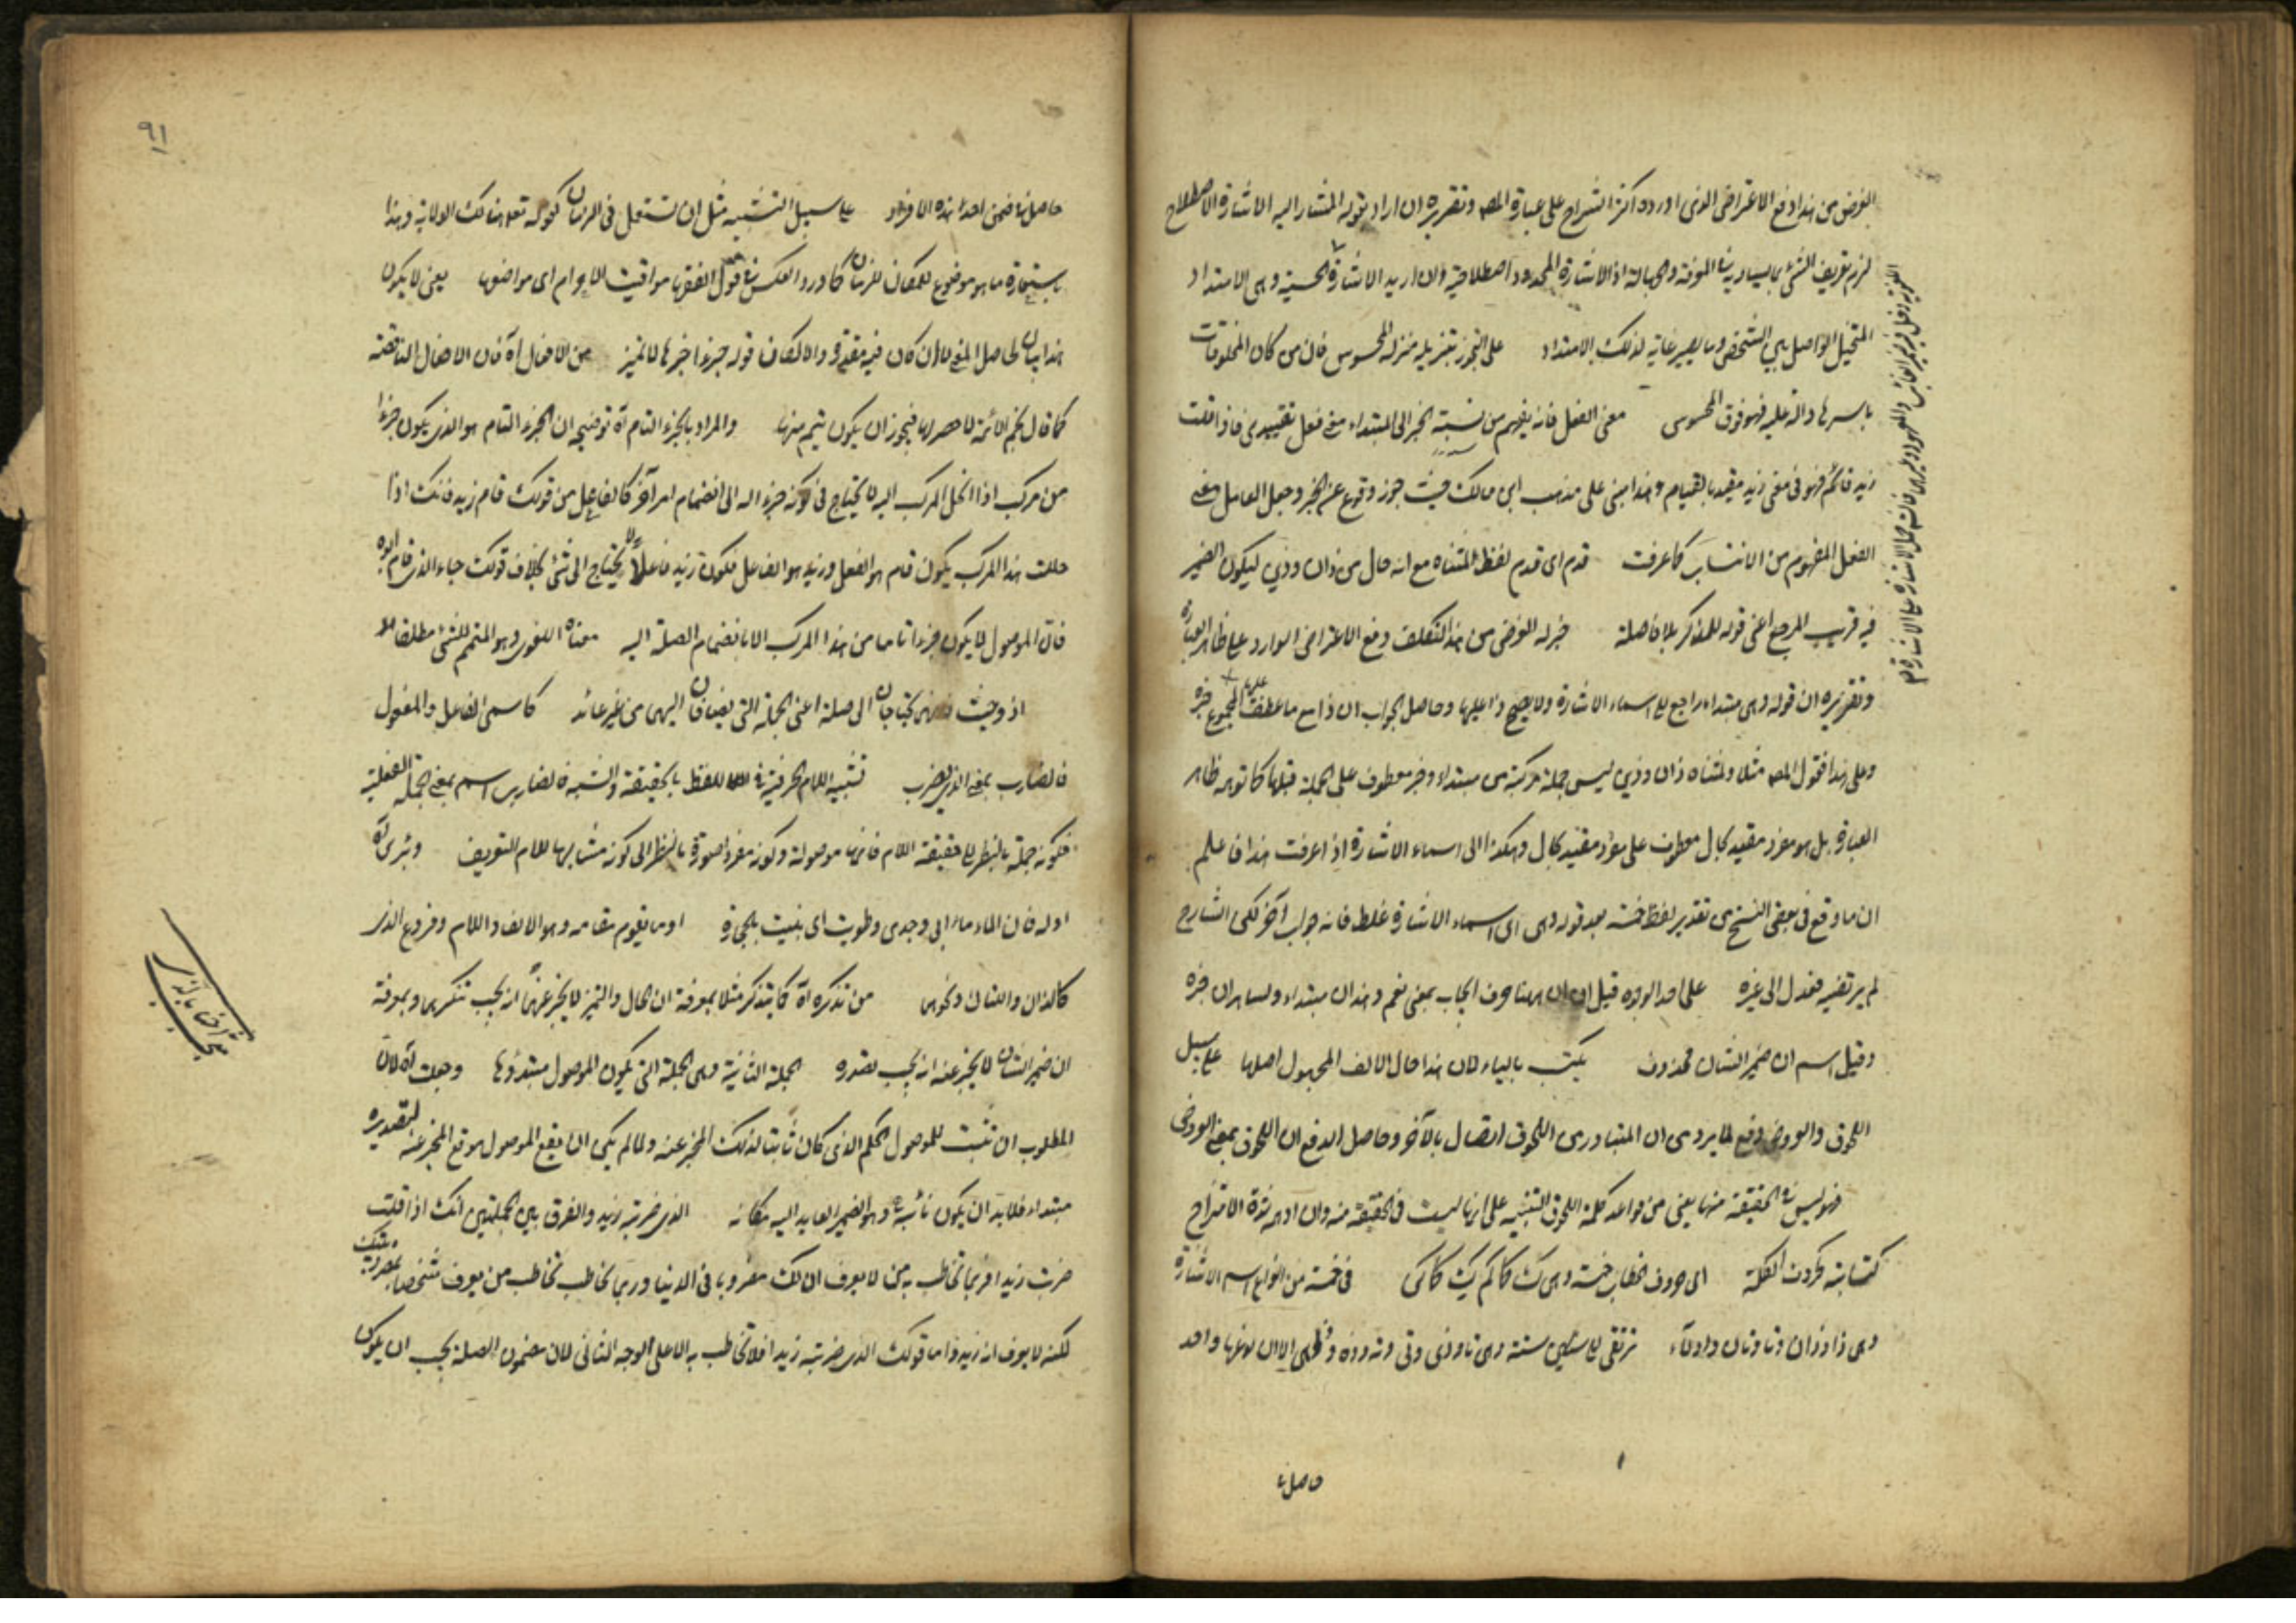 الغرض من هذا دفع الاعتراض الذى اورده اكثر الشراح على عبارة المص وتقريره ان اراد بقوله المشار اليه الاشارة الاصطلاحية
لزم تعريف الشئ بما يساويه فى المعرفة والجهالة اذ الاشارة المحدود اصطلاحية وان اريد الاشارة الحسية وهى الامتداد
المتخيل الواصل بين الشخص وما يصير غاية لذلك الامتداد على التجوز بتنزيله منزلة المحسوس فان من كان المخلوقات
باسرها دالة عليه فهو فوق المحسوس معنى الفعل فانه يفهم من نسبة الخبر الى المبتداء معنى فعل تقييدى فاذا قلت
زيد قائم فهو فى معنى زيد مقيد بالقيام وهذا مبنى على مذهب ابن مالك حيث جوز وقوع عن الخبر وجعل العامل معنى
الفعل المفهوم من الانتساب كما عرفت قدم اى قدم لفظ المثناه مع انه حال من ذان وذين ليكون الضمير
فيه قريب المرجع اعنى قوله للمذكر بلا فاصلة خبره الغرض من هذا التكلف دفع الاعتراض الوارد على ظاهر العبارة
وتقريره ان قوله وهى مبتداء راجع الى اسماء الاشارة ولا يصح ذا عليها وحاصل الجواب ان ذا مع ما عطف عليها المجموع خبره
وعلى هذا فقول المص مثلا ولمثناه ذان وذين ليس جملة مركبة من مبتداء وخبر معطوف على الجملة قبلها كما توهمه ظاهر
العبارة بل هو مفرد مقيد بحال معطوف على مفرد مقيد بحال وهكذا الى اسماء الاشارة اذا عرفت هذا فاعلم
ان ما وقع فى بعض النسخ من تقدير لفظ خمسة بعد قوله وهى اى اسماء الاشارة غلط فانه جواب آخر لكن الشارح
لم يرتضيه فعدل الى غيره على احد الوجوه قيل ان ان ههنا حرف ايجاب بمعنى نعم وهذان مبتداء ولساحران خبره
وقيل اسم ان ضمير الشان محذوف يكتب بالياء لان هذا حال الالف المجهول اصلها على سبيل
اللحوق والعروض دفع لما يرد من ان المتبادر من اللحوق اتصال بالآخر وحاصل الدفع ان اللحوق بمعنى العروض
فهو ليس فى الحقيقة منها يعنى من فوايد كلمة اللحوق التنبيه على انها ليست فى الحقيقة منه وان اوهمه شدة الامتزاج
كتابته كحروف الكلمة اى حروف الخطاب خمسة وهى ك كما كم ك كن فى خمسة من انواع اسم الاشارة
وهى ذا وذان وتا وتان واولاء ترتقى الى ستين ستة وهى تا وذى وتى وته وذه وتهى الا ان لغتها واحد
حاصل
حاصل فى ضمن احد هذه الافراد على سبيل التشبيه مثل ان تستعمل فى الزمان كقوله تعالى هنالك الولاية وهذا
باستعارة ما هو موضوع للمكان للزمان كما ورد العكس فى قول الفقهاء مواقيت الاحرام اى مواضعها يعنى لا يكون
هذا بيان لحاصل المعنى لا ان كان فيه مقدر والا لكان قوله جزءا خبرها لا تميز من الافعال آه فان الافعال الناقصة
كما قال نجم الائمة لا حصر لها فيجوز ان يكون يتم منها والمراد بالجزء التام آه توضيحه ان الجزء التام هو الذى يكون جزءا
من مركب اذا انحل المركب اليه لا يحتاج فى كونه جزءا له الى انضمام امر آخر كالفاعل من قولك قام زيد فانك اذا
حللت هذا المركب يكون قام هو الفعل وزيد هو الفاعل فيكون زيد فاعلا لا يحتاج الى شئ بخلاف قولك جاء الذى قام ابوه
فان الموصول لا يكون جزءا تاما من هذا المركب الا بانضمام الصلة اليه معناه اللغوى وهو المتمم للشئ مطلقا
اذ وحيث فهى تحتاجان الى صلة اعنى الجملة التى يضافان اليهى من غير عائد كاسمى الفاعل والمفعول
فالضارب بمعنى الذى يضرب تشبيه اللام الحرفية فى اللفظ بالحقيقة والتشبه فالضارب اسم بمعنى الجملة الفعلية
فكونه جملة بالنظر الى حقيقة اللام فانها موصولة وكونه مفردا صورة بالنظر الى كونه مشابها للام التعريف وبئرى آه
اوله فان الماء ماء ابى وجدى وطويت اى بنيت بالحجارة او ما يقوم مقامه وهو الالف واللام وفروع الذى
كاللذان واللتان ونحوهى من تذكره آه كما يتذكر مثلا بمعرفة ان الحال والتميز لا يخبر عنهما انه يجب تنكيرهما وبمعرفة
ان ضمير الشان لا يخبر عنه انه يجب تصدره الجملة الثانية وهى الجملة التى يكون الموصول مبتدؤها وجعلت آه لان
المطلوب ان تثبت للموصول الحكم الذى كان ثابتا لذلك المخبر عنه ولما لم يكن ان يقع الموصول موقع المخبر عنه لتصديره
مبتداء فلابد ان يكون نائبه وهو الضمير العايد اليه مكانه الذى ضربته زيد والفرق بين الجملتين انك اذا قلت
ضربت زيدا فربما تخاطب به من لا يعرف ان لك مضروبا فى الدنيا وربما تخاطب من يعرف شخصا بمضروبيتك
لكنه لا يعرف انه زيد واما قولك الذى ضربته زيد فلا تخاطب به الا على الوجه الثانى لان مضمون الصلة يجب ان يكون
٩١